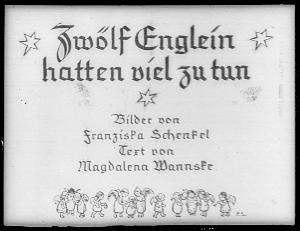 Zwölf Englein
hatten viel zu tun
Bilder von
Franziska Schenkel
Text von
Magdalena Wannske
F.S.